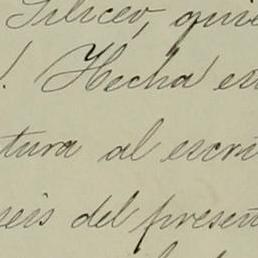 Siliceo, quie
! Hecha es
tura al escri
seis del presen